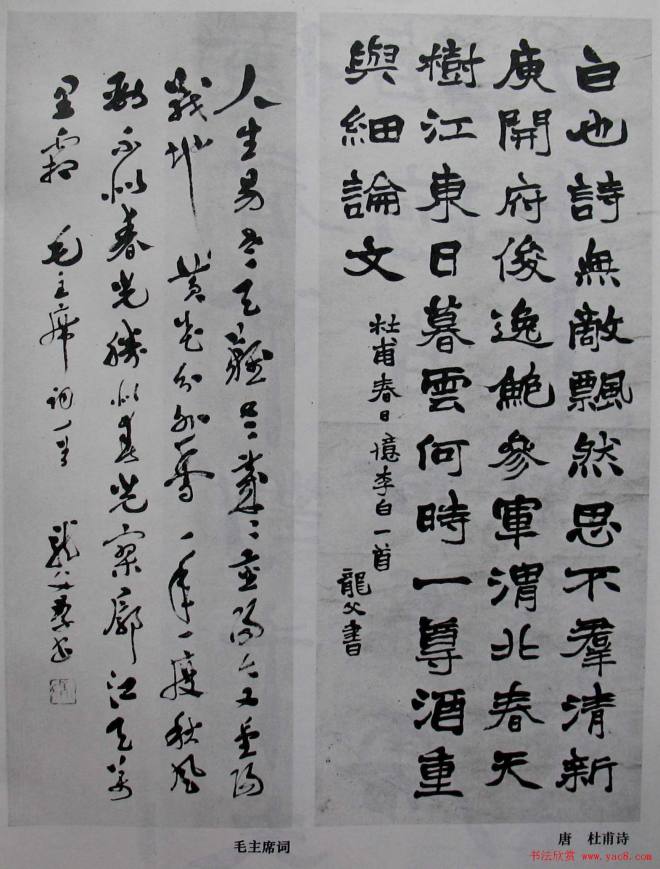 白也詩無敵飄然思不羣清新
庾開府俊逸鮑參軍渭北春天
樹江東日暮雲何時一尊酒重
與細論文
杜甫春日憶李白一首
龍父書
人生易老天難老歲〻重陽今又重陽
戰地黃花分外香一年一度秋風
勁不似春光勝似春光寥廓江天萬
里霜 毛主席詞一首 龍父書
唐 杜甫诗
毛主席词
书法欣赏 www.yac8.com